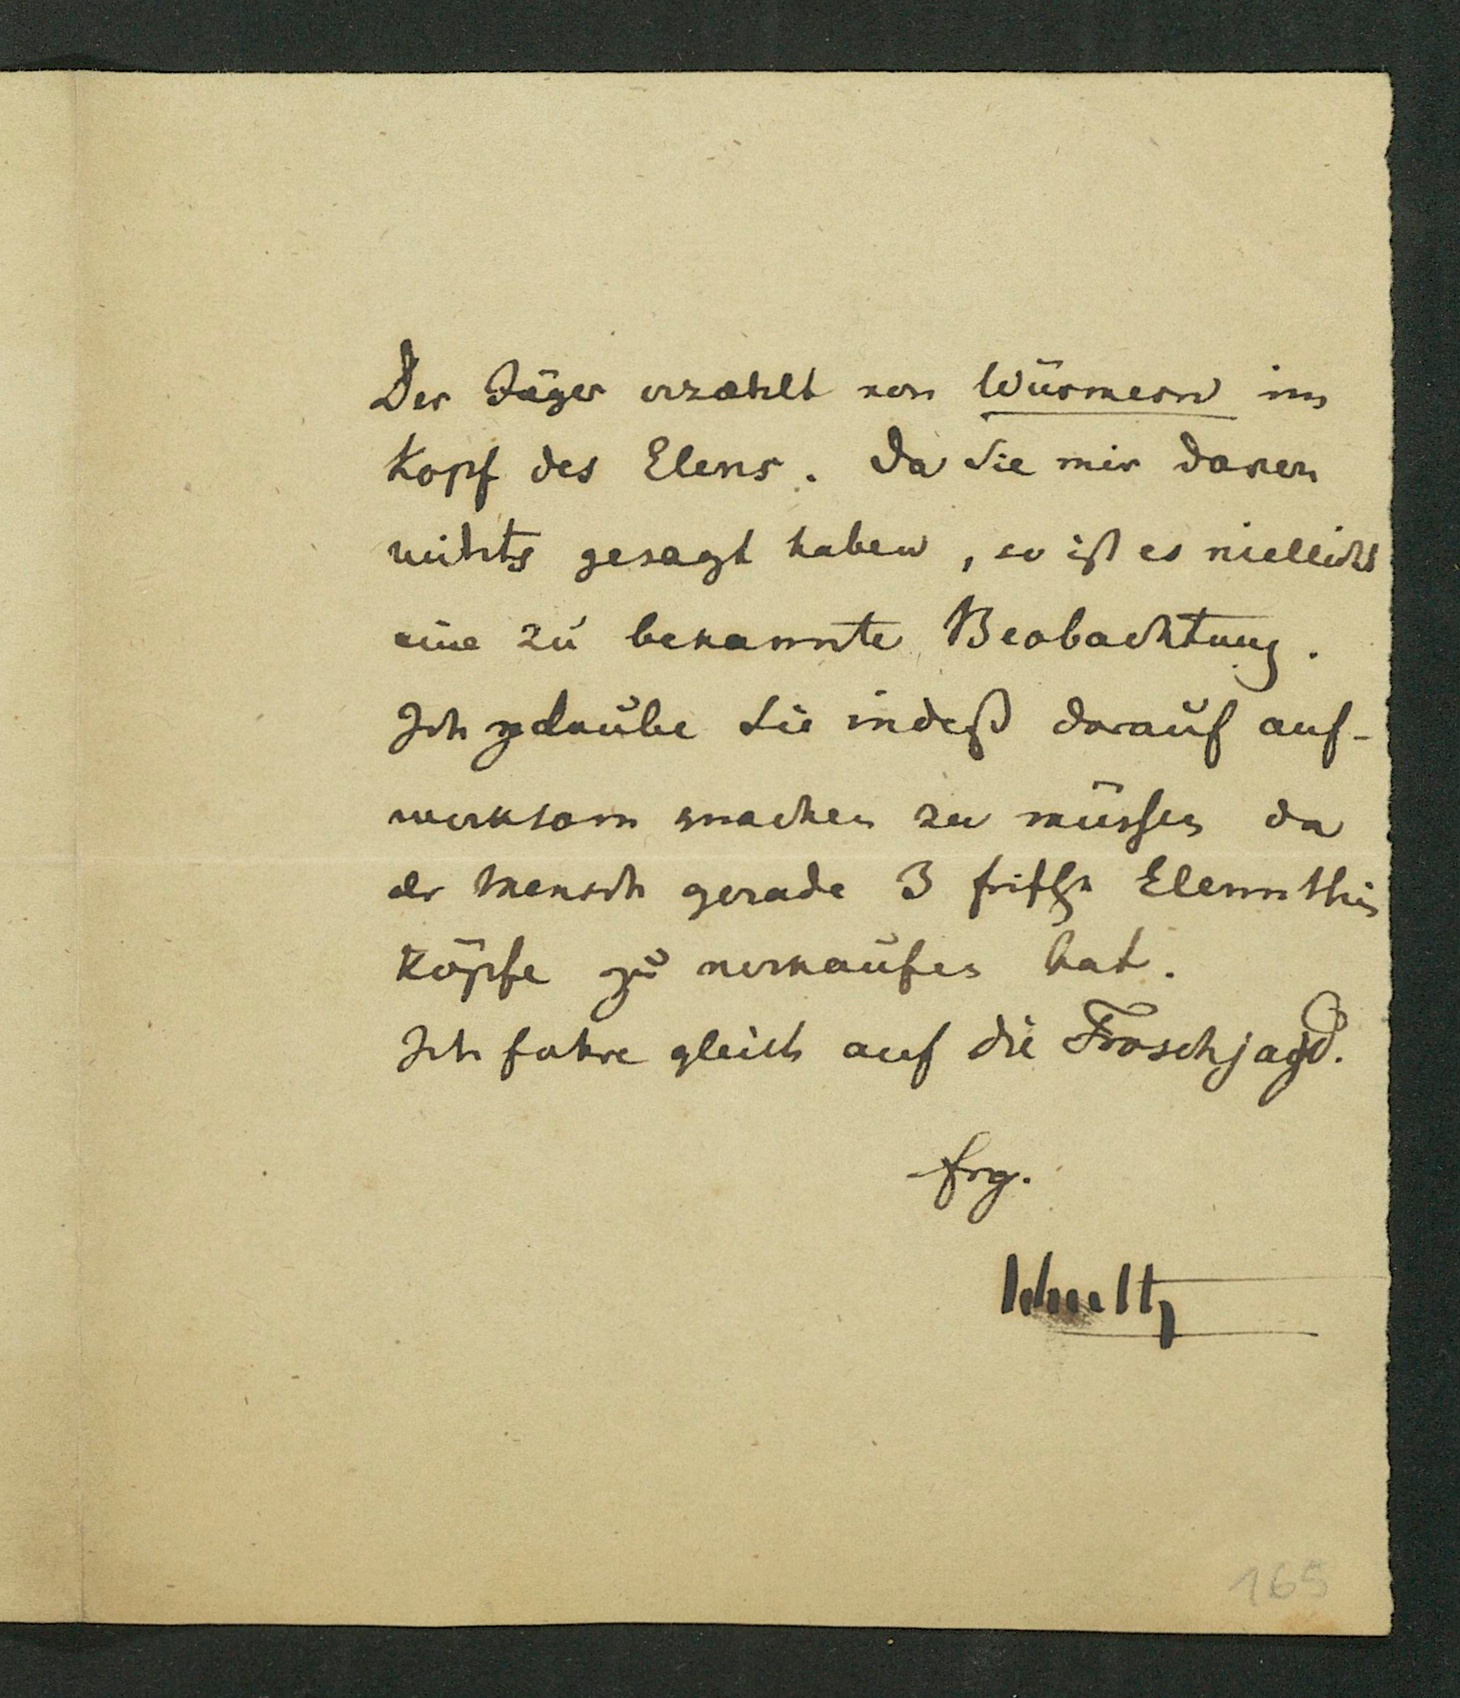 Der Jäger erzählt von Würmern im
Kopf des Elens. Da Sie mir davon
nichts gesagt haben, so ist es vielleicht
eine zu bekannte Beobachtung.
Ich glaube Sie indeß darauf auf-
merksam machen zu müssen da
der Mensch gerade 3 frische Elennthier
Köpfe zu verkaufen hat.
Ich fahre gleich auf die Froschjagd.
Schultz
165